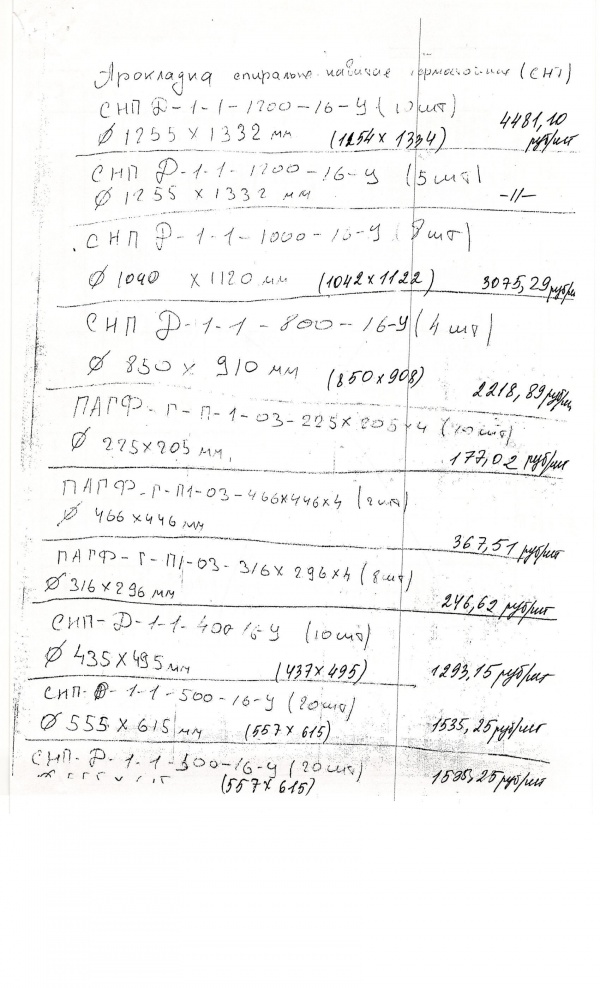 Прокладка спирально навитые (СНП)
СНП Д-1-1-1200-16-У (10 шт)
Ø 1255 х 1332 мм (1254 х 1334) 4481,10 руб/шт
СНП Д-1-1-1200-16-У (5 шт)
Ø 1255 х 1332 мм -//-
СНП Д-1-1-1000-16-У (8 шт)
Ø 1040 х 1120 мм (1042 х 1122) 3075,29 руб/шт
СНП Д-1-1-800-16-У (4 шт)
Ø 850 х 910 мм (850 х 908) 2218,89 руб/шт
ПАГФ-Г-П-1-03-225 х 205 х 4 (10 шт)
Ø 225х205 мм. 177,02 руб/шт
ПАГФ-Г-П1-03-466х446х4 (2 шт)
Ø 466 х 446 мм 367,51 руб/шт
ПАГФ-Г-П1-03-316 х 296 х 4 (8 шт)
Ø 316 х 296 мм 246,62 руб/шт
СНП-Д-1-1-400-16-У (10 шт)
Ø 435 х 495 мм (437 х 495) 1293,15 руб/шт
СНП-Д-1-1-500-16-У (20 шт)
Ø 555 х 615 мм (557 х 615) 1535,25 руб/шт
СНП-Д-1-1-500-16-У (20 шт)
(557 х 615) 1535,25 руб/шт